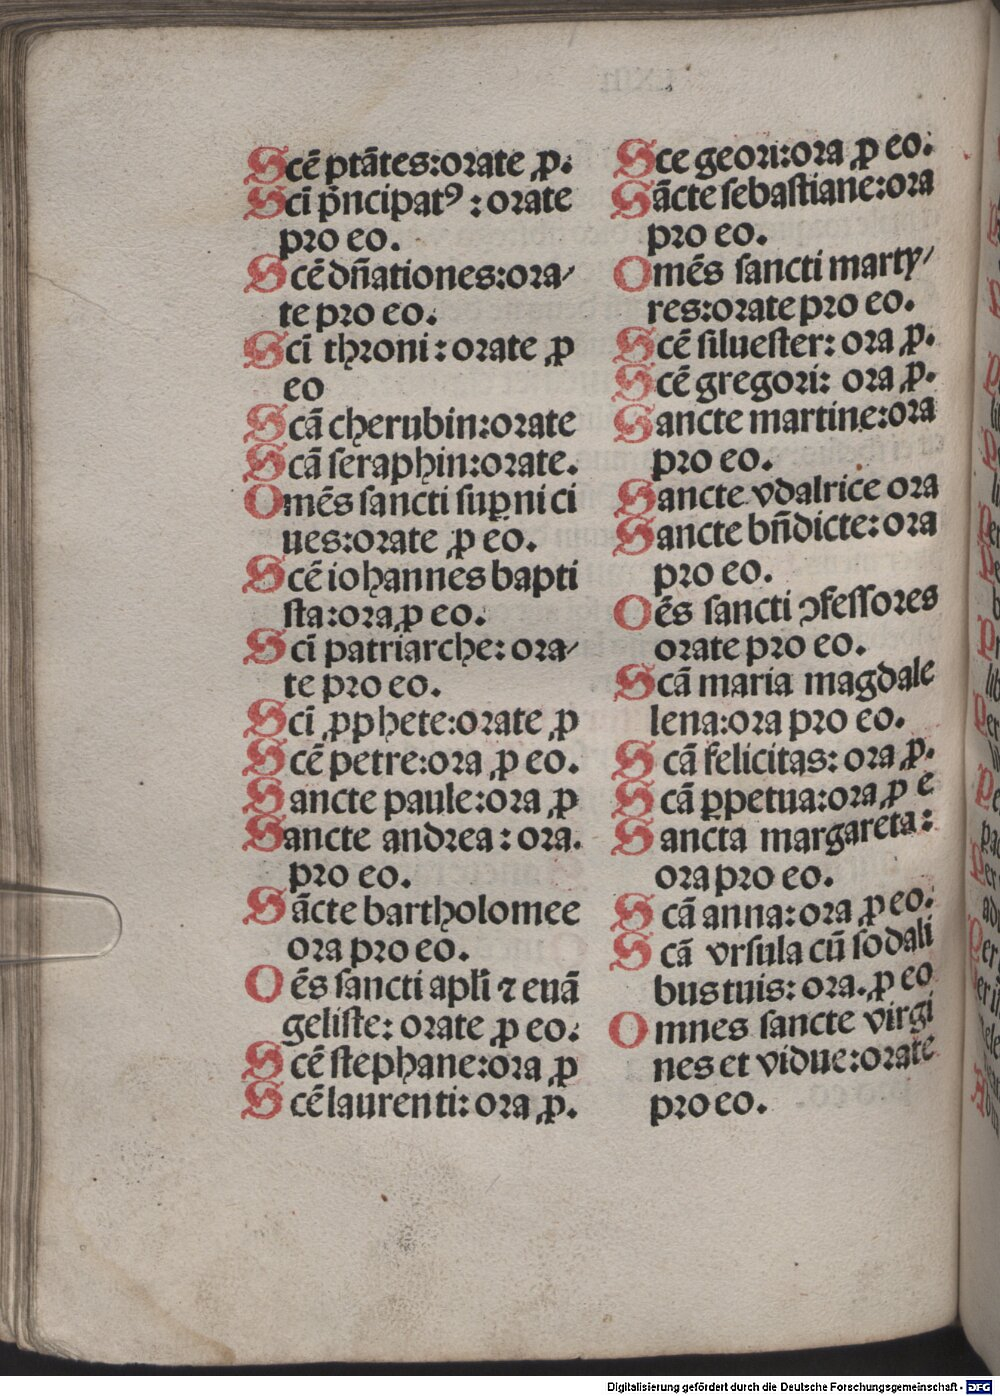 Scē ptātes:orate ꝓ.
Sci p̄ncipatꝰ : orate
pro eo.
Scē dn̄ationes:ora⸗
te pro eo.
Sci throni : orate ꝓ
eo
Scā cherubin:orate
Scā seraphin:orate.
Omēs sancti suꝑni ci
ues:orate ꝓ eo.
Scē iohannes bapti
sta:ora ꝓ eo.
Sci patriarche: ora⸗
te pro eo.
Sci ꝓphete:orate ꝓ
Scē petre:ora ꝓ eo.
Sancte paule:ora ꝓ
Sancte andrea : ora.
pro eo.
Sācte bartholomee
ora pro eo.
Oēs sancti apl̄i ⁊ euā
geliste: orate ꝓ eo.
Scē stephane:ora ꝓ
Scē laurenti: ora ꝓ.
Sce geori:ora ꝓ eo.
Sācte sebastiane:ora
pro eo.
Omēs sancti marty⸗
res:orate pro eo.
Scē siluester: ora ꝓ.
Scē gregori: ora ꝓ.
Sancte martine:ora
pro eo.
Sancte vdalrice ora
Sancte bn̄dicte: ora
pro eo.
Oēs sancti ꝯfessores
orate pro eo.
Scā maria magdale
lena:ora pro eo.
Scā felicitas: ora ꝓ.
Scā ꝑpetua:ora ꝓ e
Sancta margareta:
ora pro eo.
Scā anna: ora ꝓ eo.
Scā vrsula cū sodali
bus tuis: ora. ꝓ eo
Omnes sancte virgi
nes et vidue:orate
pro eo.
Digitalisierung gefördert durch die Deutsche Forschungsgemeinschaft - DFG